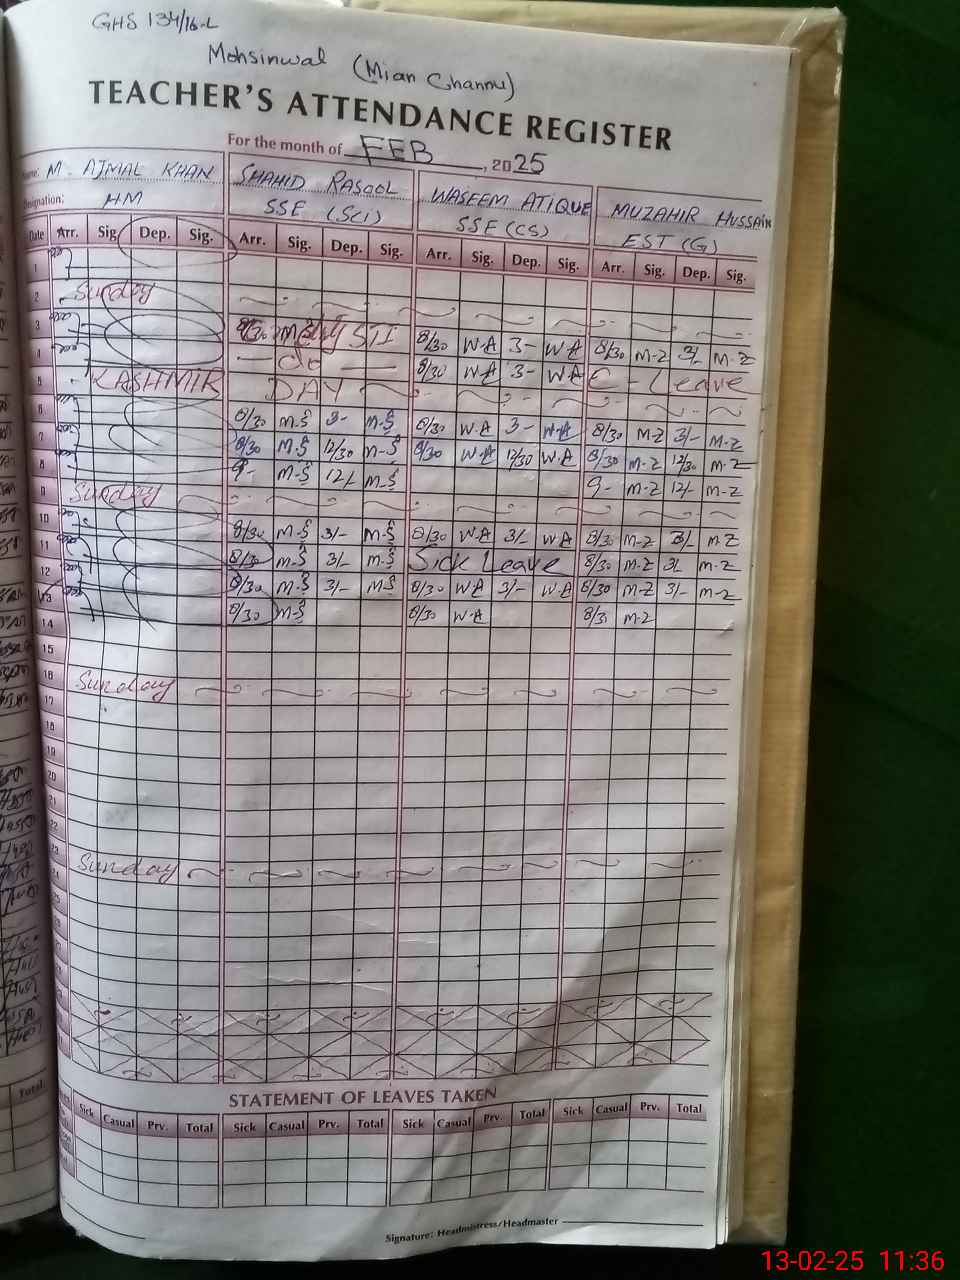 GHS 134/16-L
Mohsinwal (Mian Channu)
TEACHER'S ATTENDANCE REGISTER
For the month of FEB, 2025
Name: M. AJMAL KHAN SHAHID RASOOL WASEEM ATIQUE MUZAHIR HUSSAIN
Designation: HM SSE (Sci) SSE (CS) EST (G)
Date Arr. Sig. Dep. Sig. Arr. Sig. Dep. Sig. Arr. Sig. Dep. Sig. Arr. Sig. Dep. Sig.
1
2 Sunday
3 8/30 W-A 3- W-A 8/30 M-Z 3/- M-Z
4 do 8/30 W-A 3- W-A Leave
5 KASHMIR DAY
6 8/30 M-S 3- M-S 8/30 W-A 3- W-A 8/30 M-Z 3/- M-Z
7 8/30 M-S 12/30 M-S 8/30 W-A 12/30 W-A 8/30 M-Z 12/30 M-Z
8 9- M-S 12/- M-S 9- M-Z 12/- M-Z
9 Sunday
10 8/30 M-S 3/- M-S 8/30 W-A 3/- W-A 8/30 M-Z 3/- M-Z
11 8/30 M-S 3/- M-S Sick Leave 8/30 M-Z 3/- M-Z
12 8/30 M-S 3/- M-S 8/30 W-A 3/- W-A 8/30 M-Z 3/- M-Z
13 8/30 M-S 8/30 W-A 8/30 M-Z
14
15
16 Sunday
17
18
19
20
21
22
23 Sunday
24
STATEMENT OF LEAVES TAKEN
Sick Casual Prv. Total Sick Casual Prv. Total Sick Casual Prv. Total Sick Casual Prv. Total
Signature: Headmistress/Headmaster
Total
13-02-25 11:36